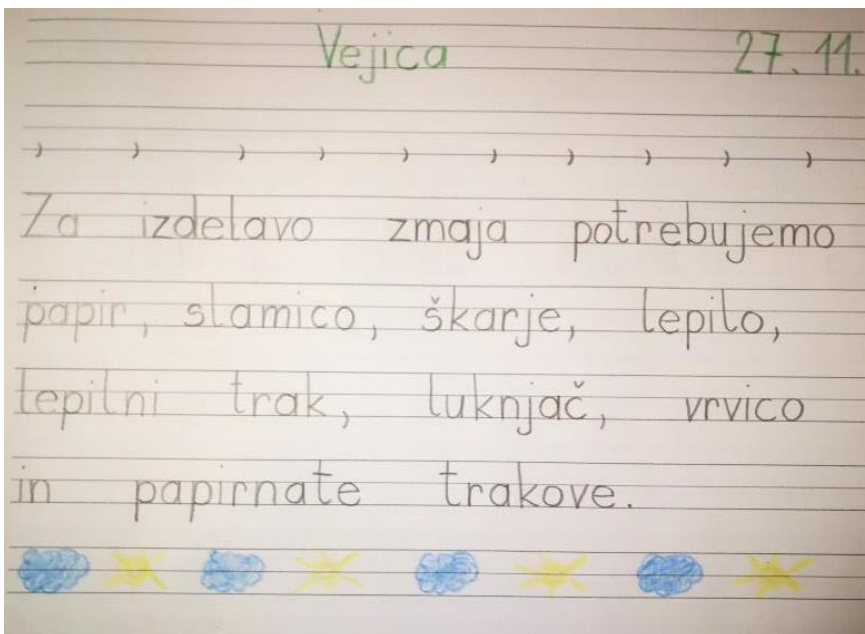 Vejica 27. 11.
, , , , , , , , , ,
Za izdelavo zmaja potrebujemo
papir, slamico, škarje, lepilo,
lepilni trak, luknjač, vrvico
in papirnate trakove.